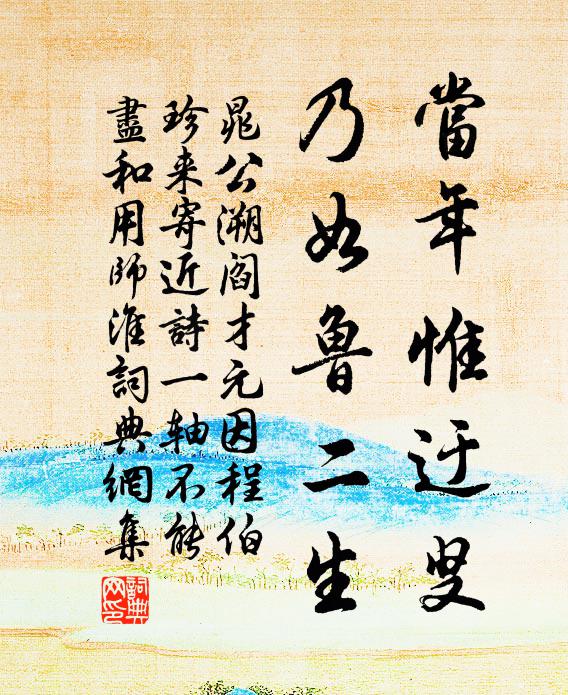 當年惟迂叟
乃如魯二生
晁公溯閻才元因程伯
珍来寄近詩一轴不能
盡和用師淮詞典網集
詞典